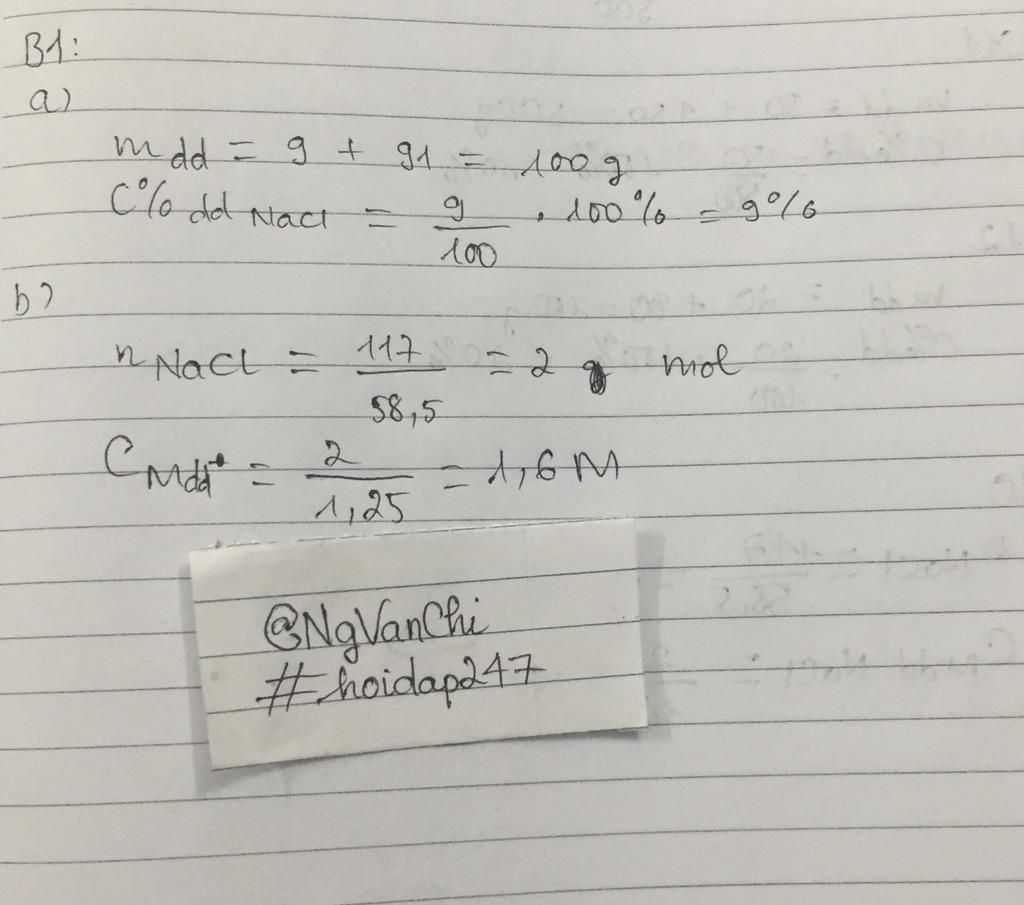 B1:
a)
m dd = 9 + 91 = 100g
C% dd NaCl = 9/100 . 100% = 9%
b)
n NaCl = 117/58,5 = 2 mol
C Mdd = 2/1,25 = 1,6 M
@NgVanChi
#hoidap247